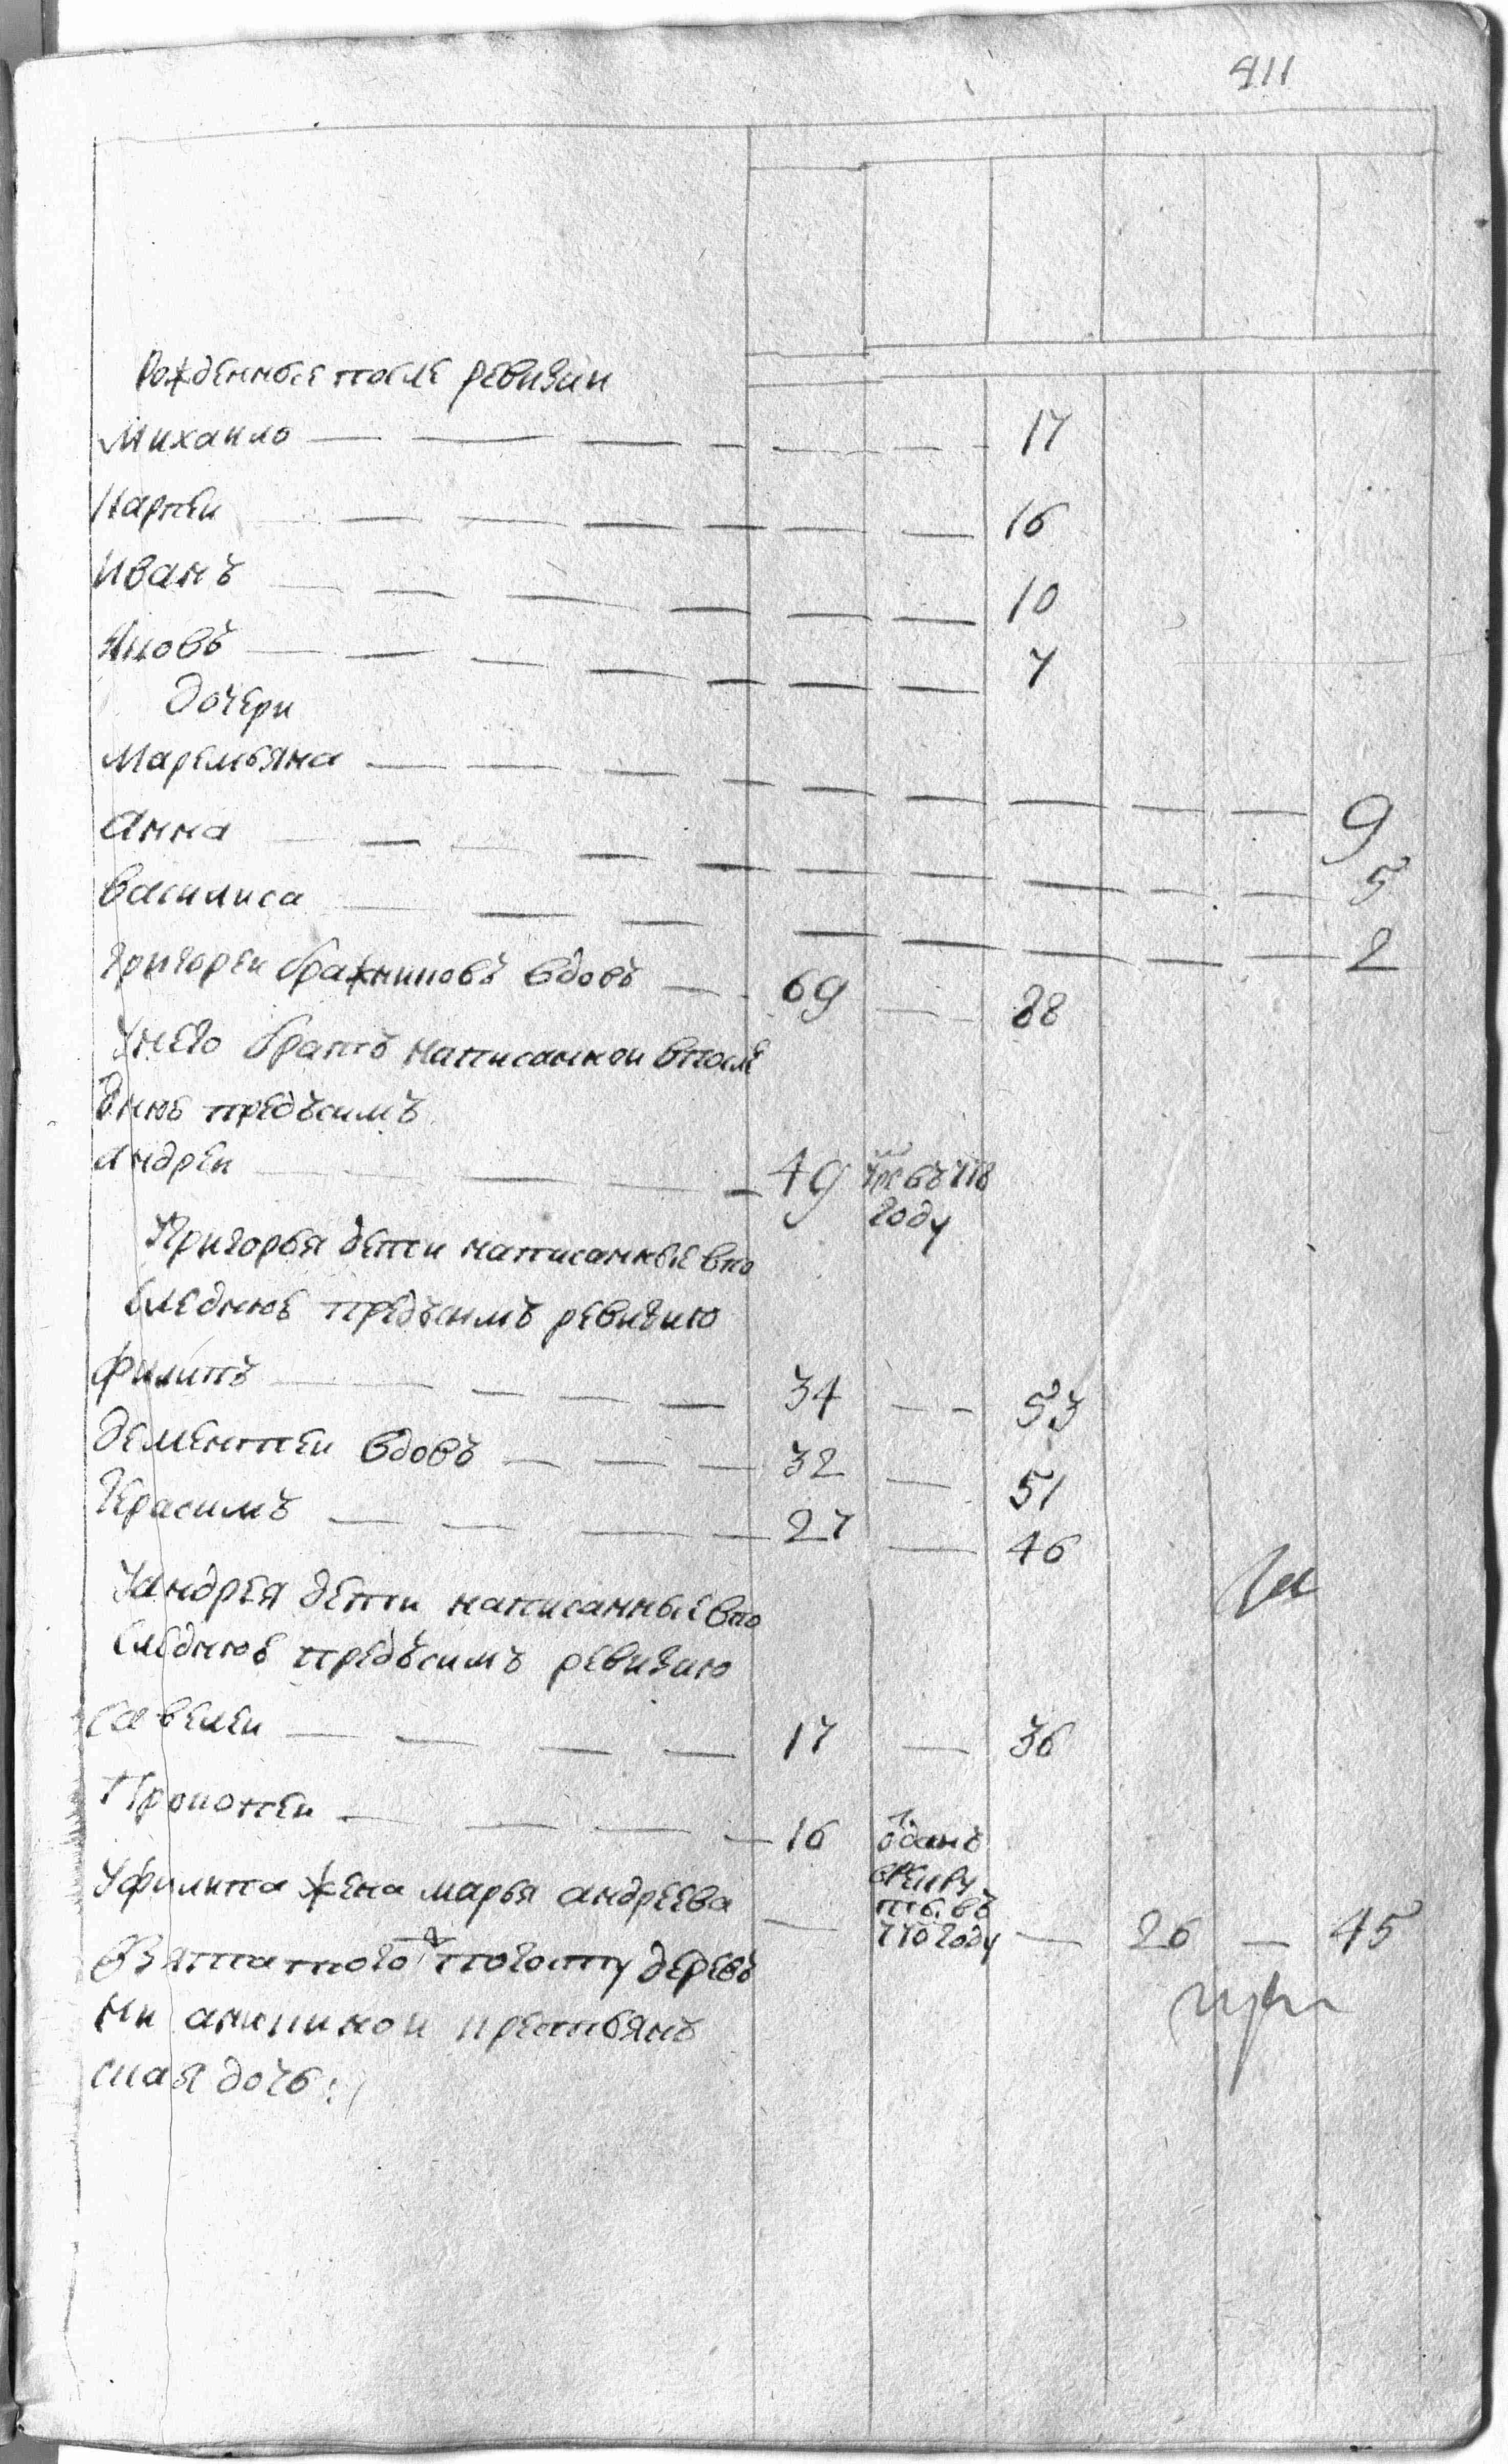 411
Рожденные после ревизии
Михаило 17
Карпеи 16
Иванъ 10
Яковъ 7
Дочери
Маремьяна 9
Анна 5
Василиса 2
Григореи бражниковъ вдовъ 69 88
Унего братъ написаннои впосле
днюю предъсимъ
Андреи 49 въ
году
Григорья дети написанные впо
следнюю предъсимъ ревизию
Филипъ 34 53
Дементеи вдовъ 32 51
Герасимъ 27 46
Уандрея дети написанные впо
следнюю предъсимъ ревизию
Савелеи 17 36
Прокопеи 16 оданъ
врекру
ты въ
770 году
Уфилипа жена марья андреева 26 45
Взята тогожъ погосту деревъ
ни аникинои крестьянъ
ская дочь: